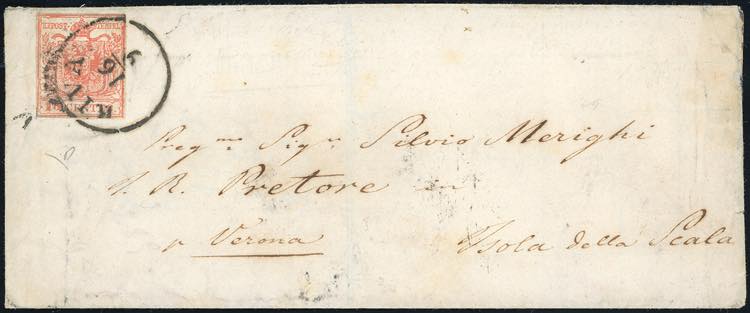 KKPOST-STEMPEL
CENTES
16
Preg.mo Sig.r Silvio Merighi
I. R. Pretore in
p Verona
Isola della Scala